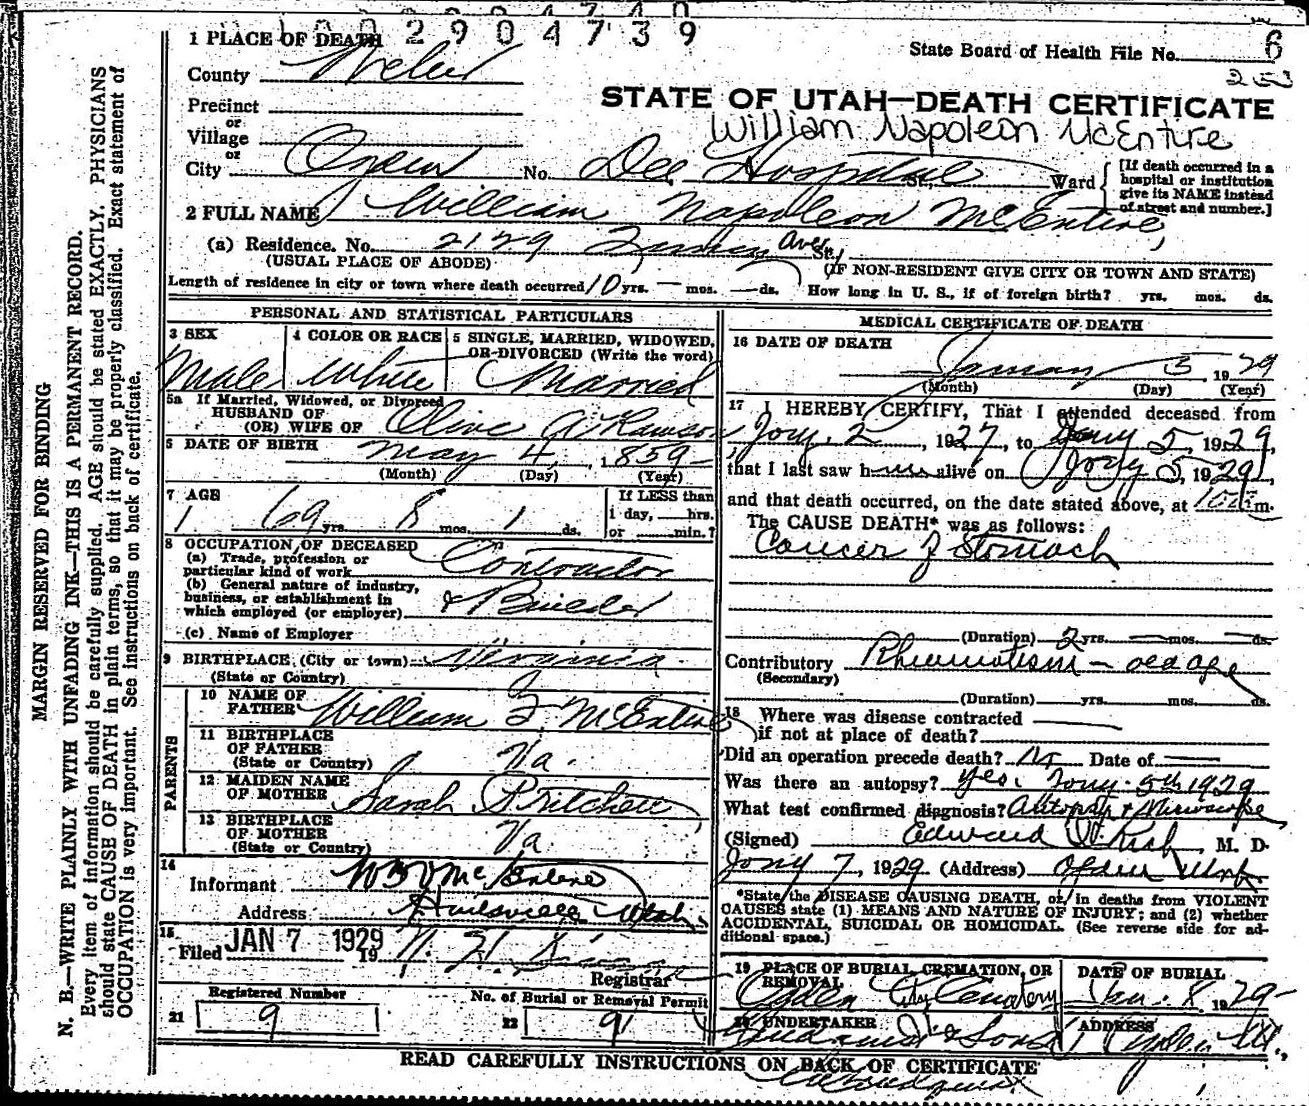 002904739
1 PLACE OF DEATH
State Board of Health File No. 6
253
County Weber
STATE OF UTAH—DEATH CERTIFICATE
Precinct
or
William Napoleon McEntire
Village
or
City Ogden No. Dee Hospital St., Ward
[If death occurred in a hospital or institution give its NAME instead of street and number.]
2 FULL NAME William Napoleon McEntire
(a) Residence. No. 2129 Ave St.
(USUAL PLACE OF ABODE)
(IF NON-RESIDENT GIVE CITY OR TOWN AND STATE)
Length of residence in city or town where death occurred 10 yrs. — mos. — ds. How long in U. S., if of foreign birth? yrs. mos. ds.
PERSONAL AND STATISTICAL PARTICULARS
3 SEX
Male
4 COLOR OR RACE
White
5 SINGLE, MARRIED, WIDOWED, OR DIVORCED (Write the word)
Married
5a If Married, Widowed, or Divorced
HUSBAND OF
(OR) WIFE OF Olive A. Rawson
6 DATE OF BIRTH May 4, 1859
(Month) (Day) (Year)
7 AGE
69 yrs. 8 mos. 1 ds.
If LESS than
1 day, hrs.
or min.?
8 OCCUPATION OF DECEASED
(a) Trade, profession or
particular kind of work Contractor
(b) General nature of industry,
business, or establishment in
which employed (or employer) & Builder
(c) Name of Employer
9 BIRTHPLACE (City or town) Virginia
(State or Country)
PARENTS
10 NAME OF
FATHER William McEntire
11 BIRTHPLACE
OF FATHER
(State or Country) Va.
12 MAIDEN NAME
OF MOTHER Sarah Pritchett
13 BIRTHPLACE
OF MOTHER
(State or Country) Va
14
Informant McEntire
Address Huntsville Utah
15
Filed JAN 7 1929 19
Registrar
Registered Number
21 9
No. of Burial or Removal Permit
22 91
MEDICAL CERTIFICATE OF DEATH
16 DATE OF DEATH
January 5 1929
(Month) (Day) (Year)
17 I HEREBY CERTIFY, That I attended deceased from
Jany. 2, 1927, to Jany 5 1929,
that I last saw him alive on Jany 5, 1929,
and that death occurred, on the date stated above, at m.
The CAUSE DEATH* was as follows:
Cancer of Stomach
(Duration) 2 yrs. — mos. — ds.
Contributory Rheumatism — old age
(Secondary)
(Duration) yrs. mos. ds.
18 Where was disease contracted
if not at place of death?
Did an operation precede death? No Date of —
Was there an autopsy? yes. Jany. 5th 1929
What test confirmed diagnosis? Autopsy + Microscope
(Signed) Edward Rich, M. D.
Jany 7, 1929 (Address) Ogden Utah
*State the DISEASE CAUSING DEATH, or, in deaths from VIOLENT
CAUSES state (1) MEANS AND NATURE OF INJURY; and (2) whether
ACCIDENTAL, SUICIDAL OR HOMICIDAL. (See reverse side for additional space.)
19 PLACE OF BURIAL CREMATION, OR
REMOVAL
Ogden City Cemetery
DATE OF BURIAL
Jan. 8 1929
20 UNDERTAKER
& Sons
ADDRESS
Ogden Ut.
READ CAREFULLY INSTRUCTIONS ON BACK OF CERTIFICATE
MARGIN RESERVED FOR BINDING
N. B.—WRITE PLAINLY WITH UNFADING INK—THIS IS A PERMANENT RECORD.
Every item of information should be carefully supplied. AGE should be stated EXACTLY. PHYSICIANS
should state CAUSE OF DEATH in plain terms, so that it may be properly classified. Exact statement of
OCCUPATION is very important. See instructions on back of certificate.